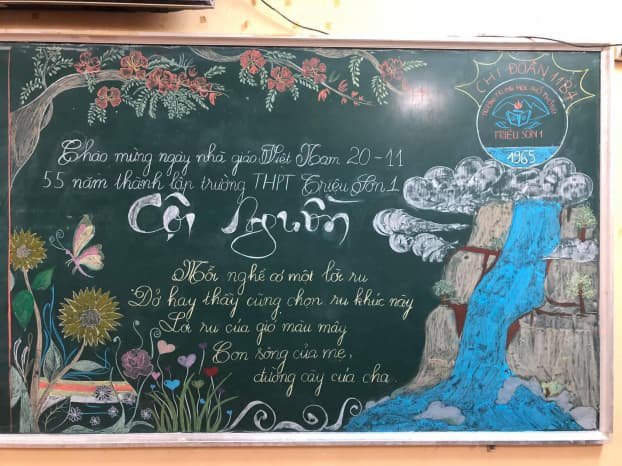 CHI ĐOÀN 11B7
TRƯỜNG TRUNG HỌC PHỔ THÔNG
TRIỆU SƠN 1
1965
Chào mừng ngày nhà giáo Việt Nam 20-11
55 năm thành lập trường THPT Triệu Sơn 1
Cội Nguồn
Mỗi nghề có một lời ru
Dở hay thầy cũng chọn ru khúc này
Lời ru của gió màu mây
Con sông của mẹ,
đường cày của cha.